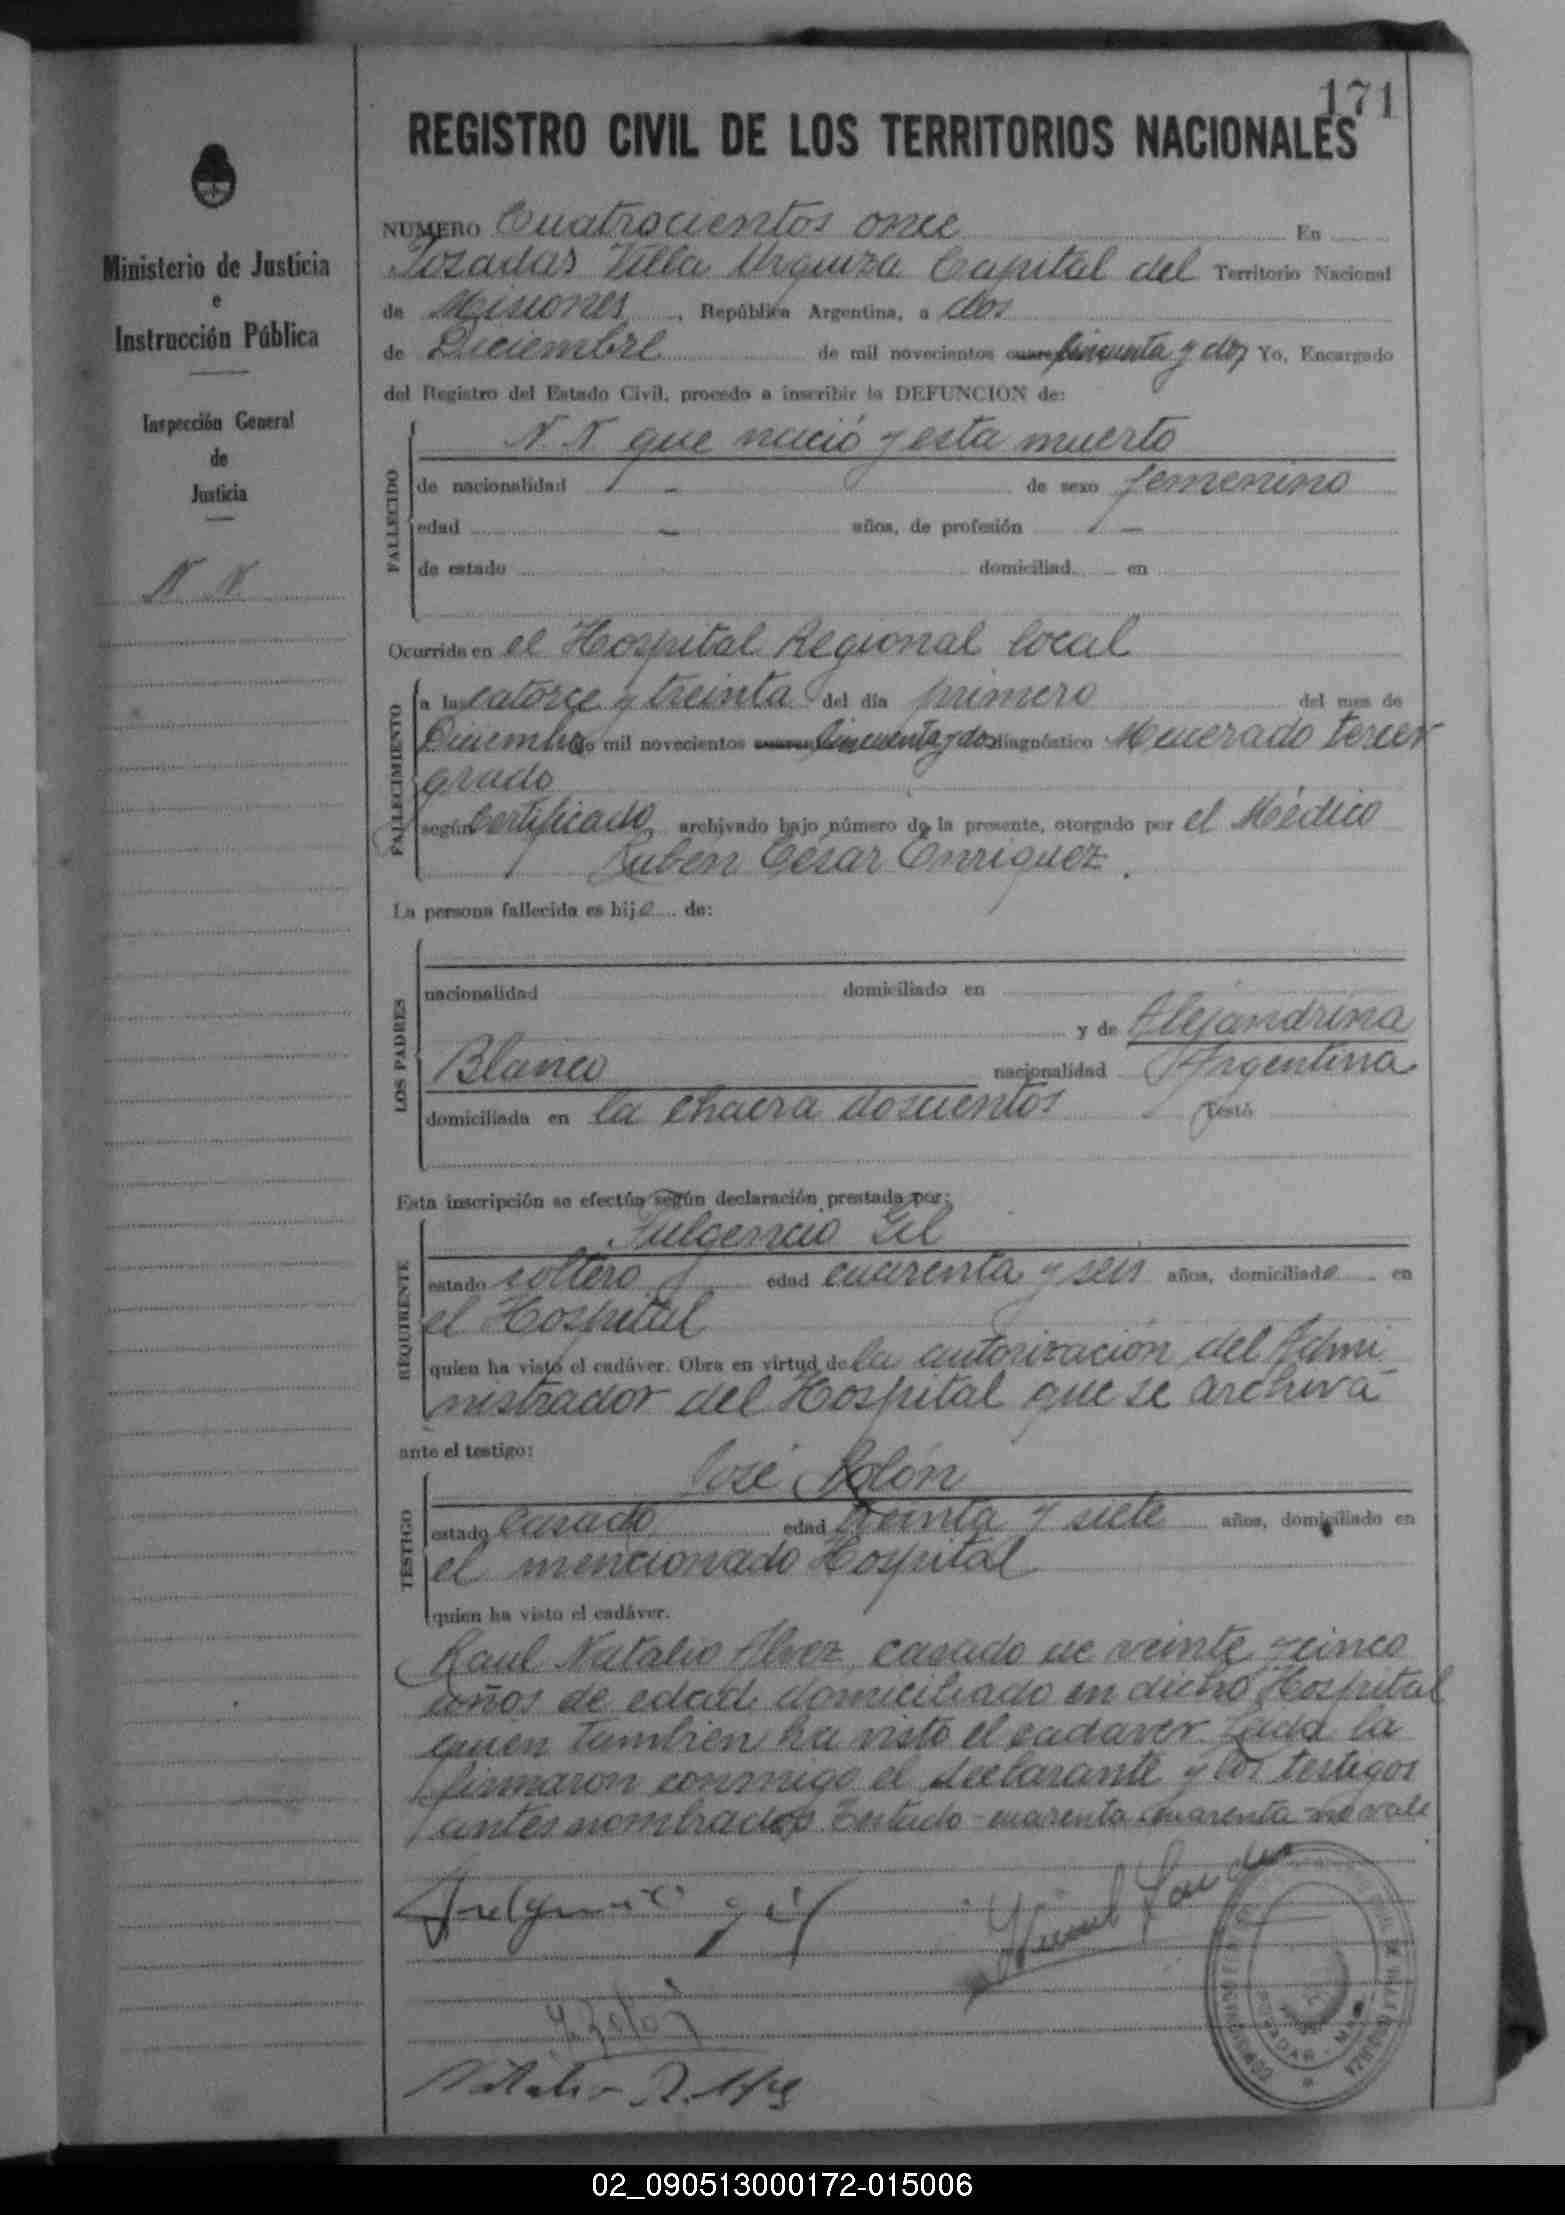 171
REGISTRO CIVIL DE LOS TERRITORIOS NACIONALES
Ministerio de Justicia
e
Instrucción Pública
Inspección General
de
Justicia
N. N.
NUMERO Cuatrocientos once En
Posadas Villa Urquiza Capital del Territorio Nacional
de Misiones, República Argentina, a dos
de Diciembre de mil novecientos cincuenta y dos Yo, Encargado
del Registro del Estado Civil, procedo a inscribir la DEFUNCION de:
FALLECIDO
N. N que nació y esta muerto
de nacionalidad - de sexo femenino
edad - años, de profesión -
de estado domiciliad en
Ocurrida en el Hospital Regional local
FALLECIMIENTO
a las catorce y treinta del día primero del mes de
Diciembre de mil novecientos cincuenta y dos diagnóstico Mecerado tercer
grado
según Certificado archivado bajo número de la presente, otorgado por el Médico
Rubén César Enriquez.
La persona fallecida es hij de:
LOS PADRES
nacionalidad domiciliado en
y de Alejandrina
Blanco nacionalidad Argentina
domiciliada en la chacra doscientos Testó
Esta inscripción se efectúa según declaración prestada por:
REQUIRENTE
Fulgencio Gil
estado soltero edad cuarenta y seis años, domiciliado en
el Hospital
quien ha visto el cadáver. Obra en virtud de la autorización del Admi
nistrador del Hospital que se archiva
ante el testigo:
TESTIGO
José Rolón
estado casado edad treinta y siete años, domiciliado en
el mencionado Hospital
quien ha visto el cadáver.
Raul Natalio Alvez, casado de veinte y cinco
años de edad domiciliado en dicho Hospital
quien tambien ha visto el cadaver. Leida la
firmaron conmigo el declarante y los testigos
antes nombrados. Testado - cuarenta cuarenta - no vale
Fulgencio gil
J. Rolón
02_090513000172-015006